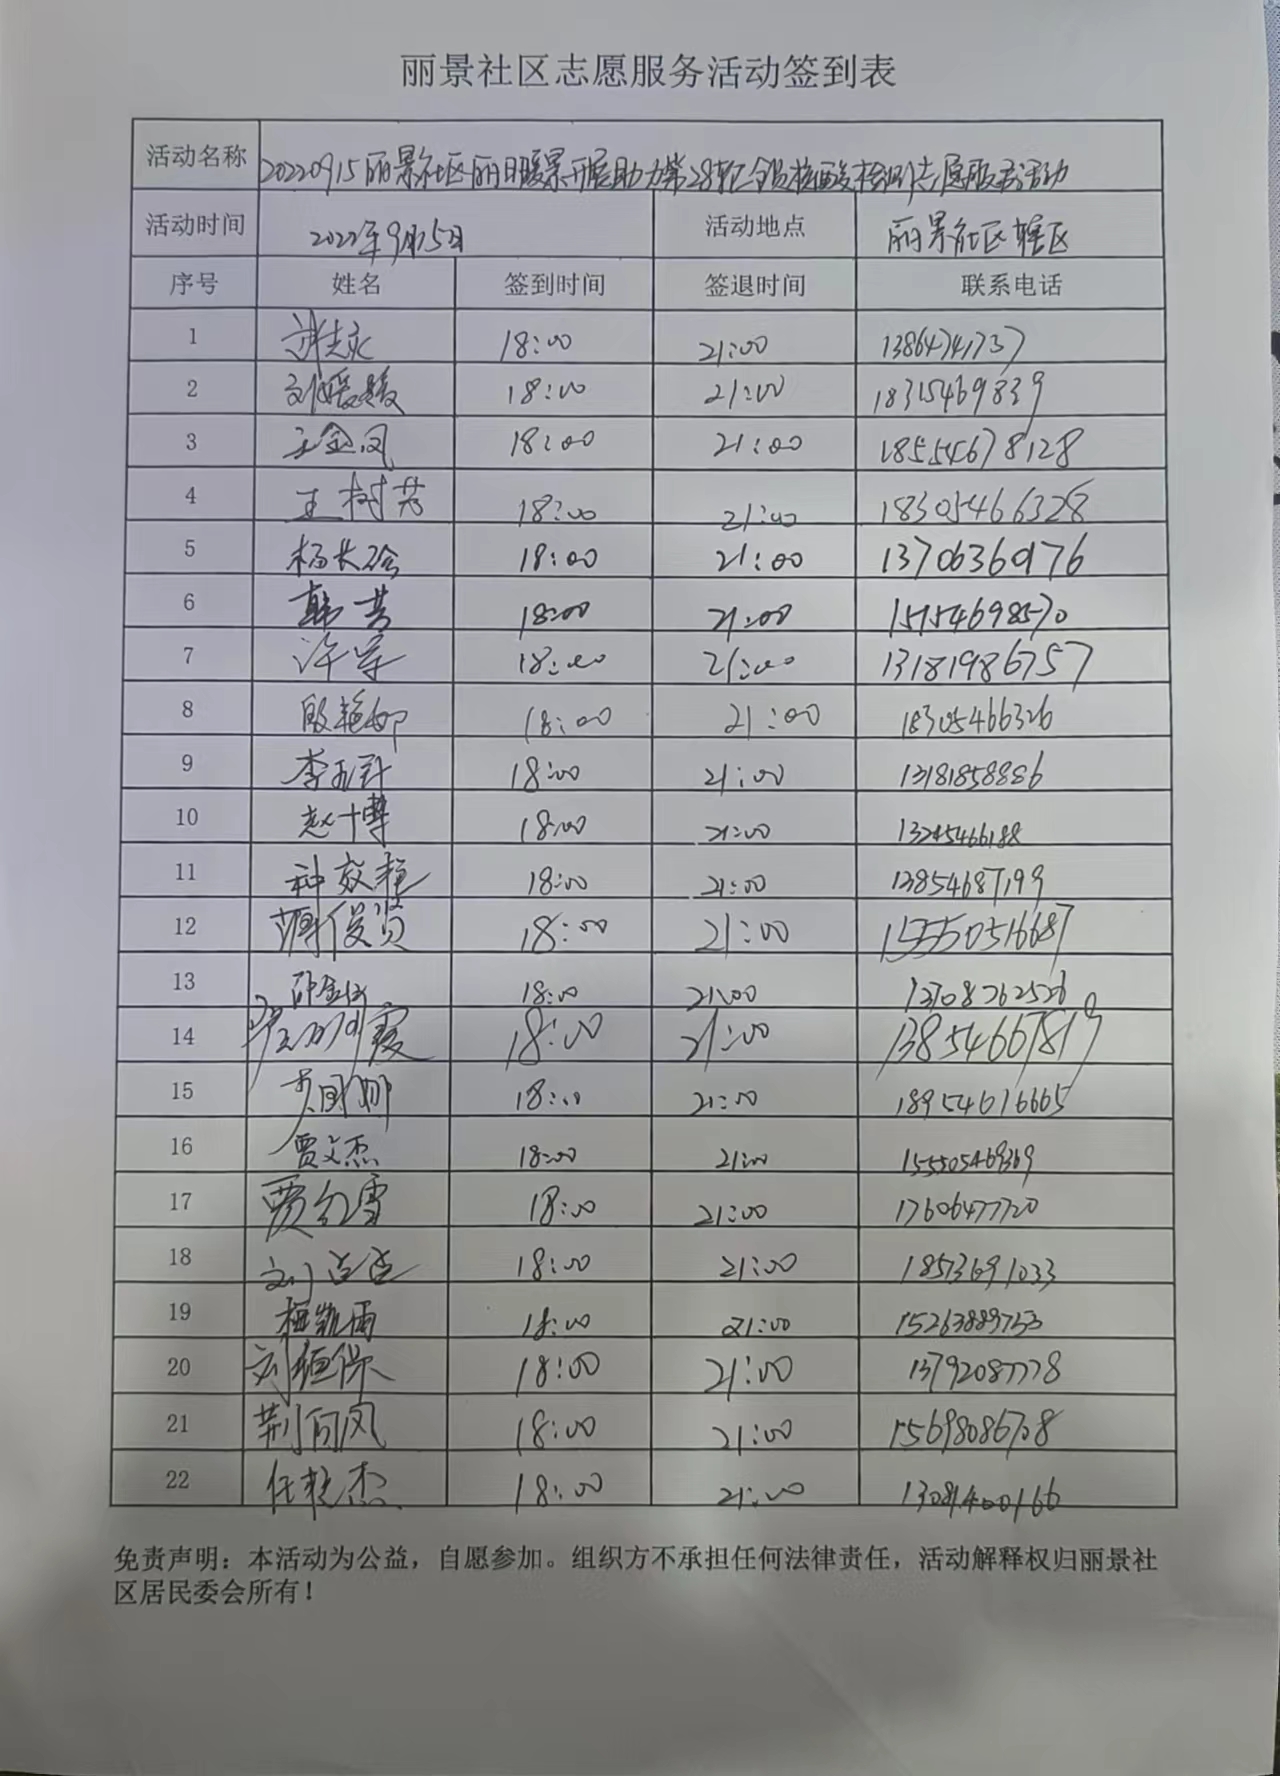 丽景社区志愿服务活动签到表
活动名称 20220915丽景社区丽日暖景开展助力第28轮全员核酸检测志愿服务活动
活动时间 2022年9月15日 活动地点 丽景社区辖区
序号 姓名 签到时间 签退时间 联系电话
1 18:00 21:00 13864741737
2 刘媛媛 18:00 21:00 18315469839
3 王金凤 18:00 21:00 18554678128
4 王树芳 18:00 21:00 18305466328
5 杨长玲 18:00 21:00 13706360176
6 韩芸 18:00 21:00 15154698570
7 许军 18:00 21:00 13181986757
8 殷艳娜 18:00 21:00 18305466326
9 18:00 21:00 13181858886
10 赵博 18:00 21:00 13245466188
11 18:00 21:00 13854687199
12 18:00 21:00 15550516687
13 18:00 21:00 13708762526
14 18:00 21:00 13854667819
15 18:00 21:00 18954616665
16 贾文杰 18:00 21:00 155505469369
17 贾红雪 18:00 21:00 17606477720
18 18:00 21:00 18513691033
19 梅凯雨 18:00 21:00 15263889753
20 刘恒保 18:00 21:00 13792087778
21 荆向凤 18:00 21:00 15698086708
22 任艳杰 18:00 21:00 13081400166
免责声明：本活动为公益，自愿参加。组织方不承担任何法律责任，活动解释权归丽景社
区居民委会所有！